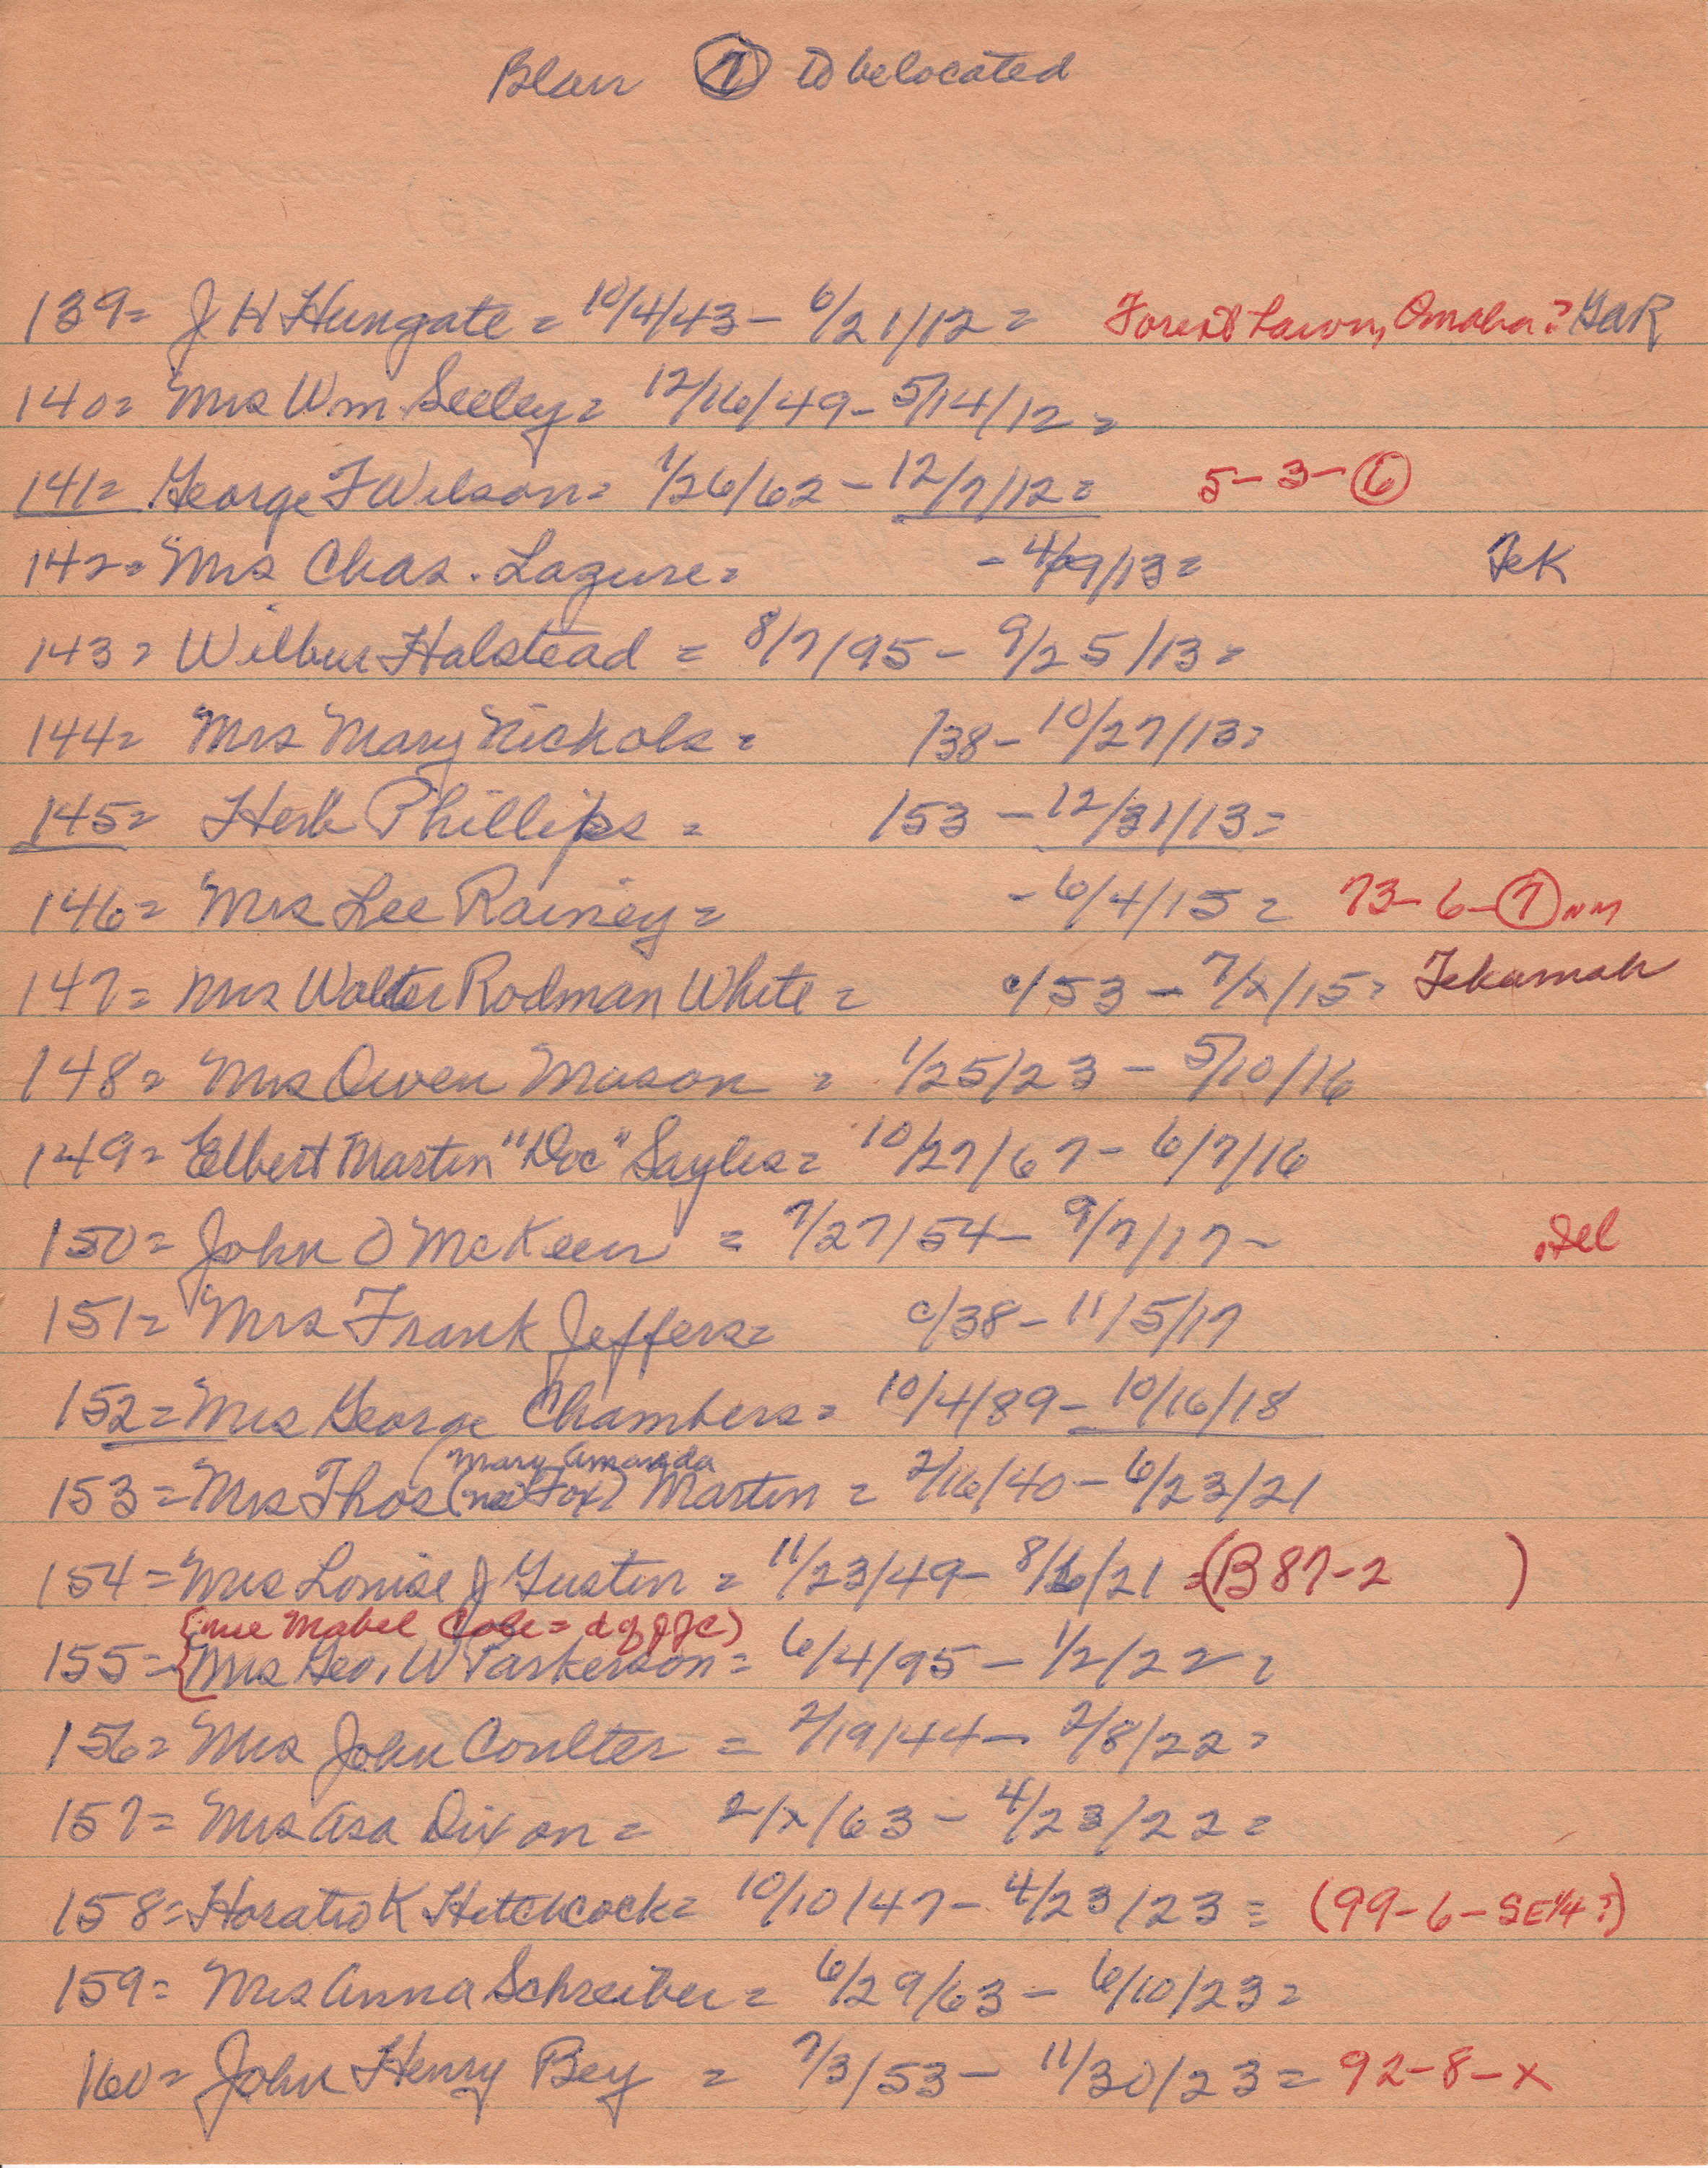 Blair ⑦ to be located
139= J H Hungate = 10/4/43 - 6/21/12 = Forest Lawn, Omaha? GaR
140= Mrs Wm. Seeley = 12/16/49 - 5/14/12 =
141= George F Wilson = 1/26/62 - 12/7/12 = 5-3-⑥
142= Mrs Chas. Lazure = - 4/29/13 = Tek
143= Wilbur Halstead = 8/7/95 - 9/25/13 =
144= Mrs Mary Nichols = /38 - 10/27/13 =
145= Herb Phillips = /53 - 12/31/13 =
146= Mrs Lee Rainey = - 6/4/15 = 73-6-⑦ NM
147= Mrs Walter Rodman White = c/53 - 7/x/15 = Tekamah
148= Mrs Owen Mason = 1/25/23 - 5/10/16
149= Elbert Martin "Doc" Sayles = 10/27/67 - 6/7/16
150= John O McKeen = 7/27/54 - 9/7/17 -
151= Mrs Frank Jeffers = c/38 - 11/5/17
152= Mrs George Chambers = 10/4/89 - 10/16/18
(Mary Amanda
153= Mrs Thos (neé Fox) Martin = 2/16/40 - 6/23/21
154= Mrs Louise J Gustin = 11/23/49 - 8/16/21 = (B 87-2 )
(nee Mabel Cole = d of J J C)
155= Mrs Geo. W Parkerson = 6/4/95 - 1/2/22 =
156= Mrs John Coulter = 2/19/44 - 2/8/22 =
157= Mrs Asa Dixon = 2/x/63 - 4/23/22 =
158= Horatio K Hitchcock = 10/10/47 - 4/23/23 = (99-6-SE 1/4?)
159= Mrs Anna Schreiber = 6/29/63 - 6/10/23 =
160= John Henry Bey = 7/3/53 - 11/30/23 = 92-8-x